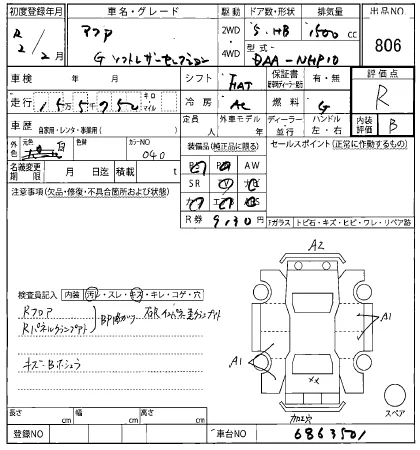 初度登録年月 車名・グレード 駆動 ドア数・形状 排気量 出品NO
R2/2月 アクア 2WD 4WD 5 HB 1500cc 806
G ソフトレザーセレクション 型式 DAA-NHP10
車検 年 月 シフト FAT 保証書 有・無 評価点
走行 155752 キロ マイル 冷房 AC 燃料 G R
車歴 自家用・レンタ・事業用( ) 定員 人 外車モデル 年 ディーラー 並行 ハンドル 左・右 内装評価 B
外色 元色 白 色替 カラーNO 040 装備品(純正品に限る) セールスポイント(正常に作動するもの)
名義変更期限 月 日迄 積載 t AW
注意事項(欠品・修復・不具合箇所および状態) SR
R券 9130円
Fガラス トビ石・キズ・ヒビ・ワレ・リペア跡
A2
検査員記入 内装 汚レ・スレ・キズ・キレ・コゲ・穴
Rフロア
A1
A1
キズ・Bホシュウ
××
加工穴
スペア
長さ cm 幅 cm 高さ cm
登録NO 車台NO 6863501